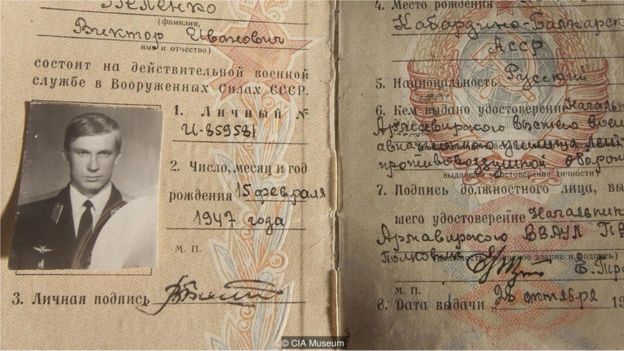 Беленко
(фамилия,
Виктор Иванович
имя и отчество)
состоит на действительной военной
службе в Вооруженных Силах СССР.
1. Личный №
И-859581
2. Число, месяц и год
рождения 15 февраля
1947 года
М. П.
3. Личная подпись
4. Место рождения
Кабардино-Балкарск
АССР
5. Национальность Русский
6. Кем выдано удостоверение Начальник
Армавирского высшего воен
авиационного училища лётч
противовоздушной оборон
7. Подпись должностного лица, вы
шего удостоверение Начальник
Армавирского ВВАУЛ ПВ
полковник
М. П.
8. Дата выдачи „26 октября
© CIA Museum